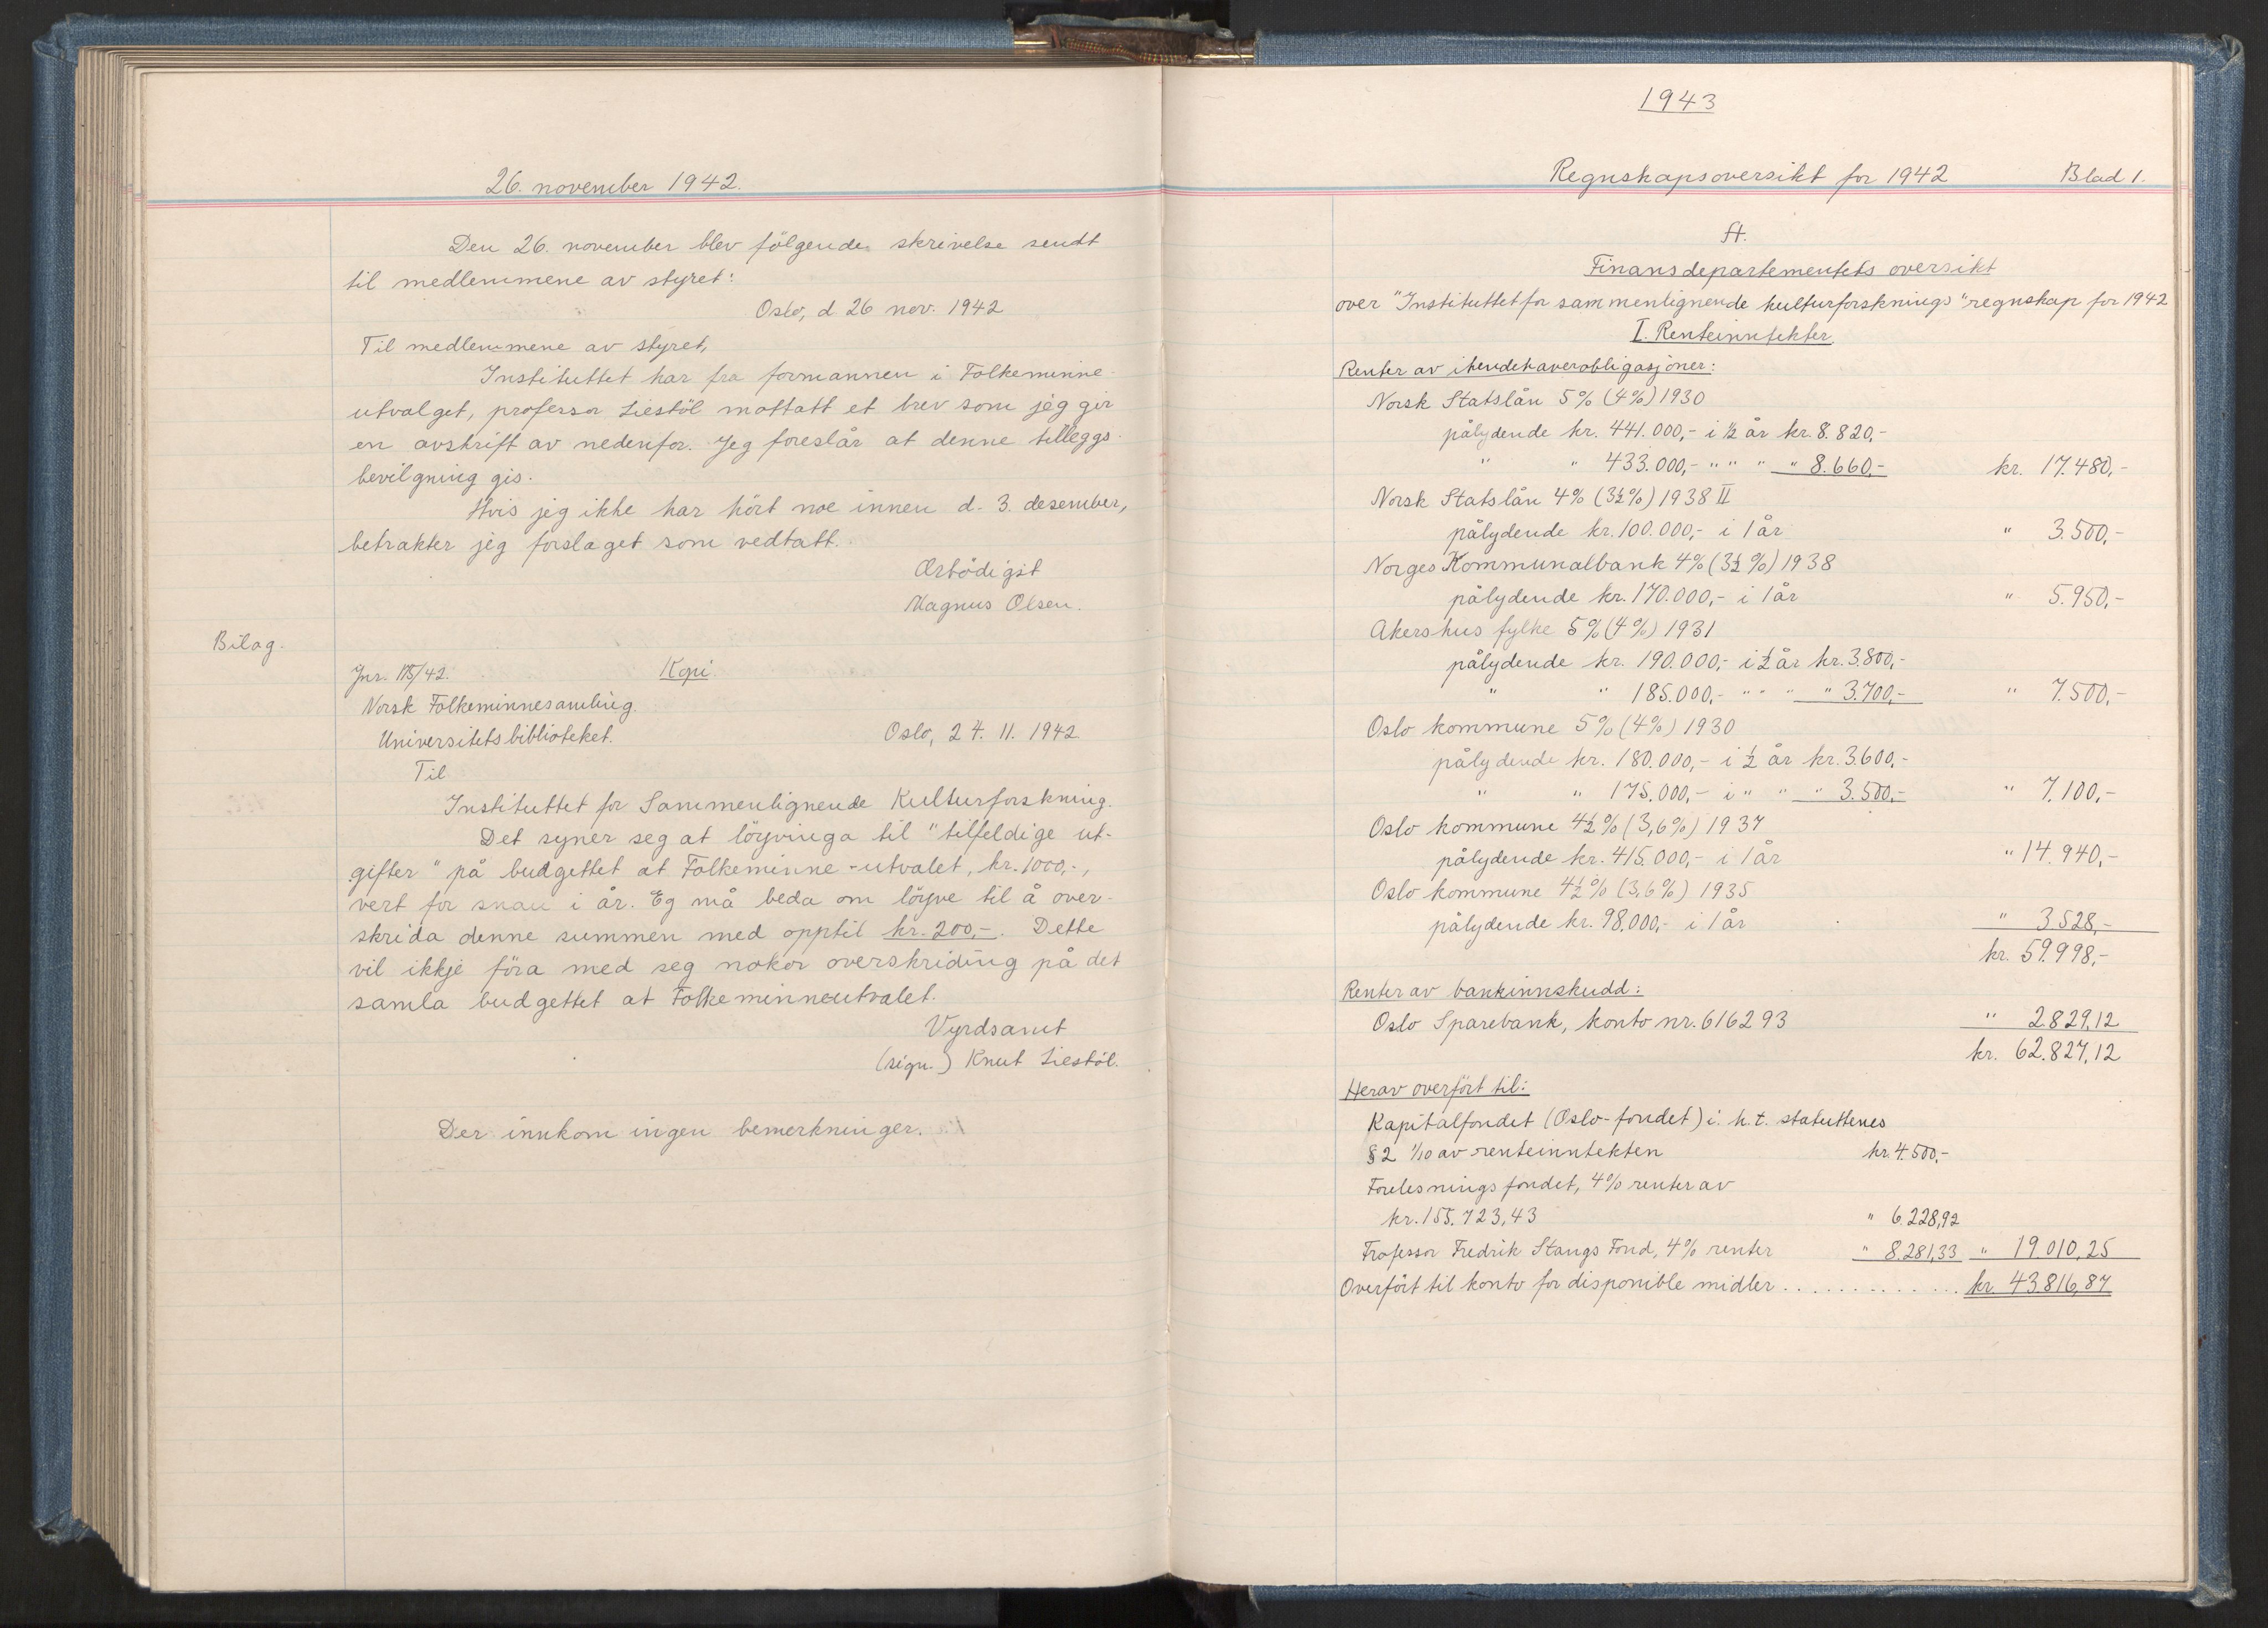 26. november 1942.
Den 26. november blev följende skrivelse sendt
til medlemmene av styret:
Oslo, d. 26 nov. 1942
Til medlemmene av styret,
Instituttet har fra formannen i Folkeminne-
utvalget, professor Liestöl mottatt et brev som jeg gir
en avskrift av nedenfor. Jeg foreslår at denne tilleggs-
bevilgning gis.
Hvis jeg ikke har hört noe innen d. 3. desember,
betrakter jeg forslaget som vedtatt.
Ærbödigst
Magnus Olsen.
Bilag.
Jnr. 175/42. Kopi
Norsk Folkeminnesamling.
Universitetsbiblioteket. Oslo, 24. 11. 1942
Til
Instituttet for Sammenlignende Kulturforskning.
Det syner seg at löyvinga til "tilfeldige ut-
gifter" på budgettet åt Folkeminne-utvalet, kr. 1000,-,
vert for snau i år. Eg må beda om löyve til å over-
skrida denne summen med opptil kr. 200,-. Dette
vil ikkje föra med seg nokor overskriding på det
samla budgettet åt Folkeminneutvalet.
Vyrdsamt
(sign.) Knut Liestöl.
Der innkom ingen bemerkninger.
1943
Regnskapsoversikt for 1942 Blad 1.
A.
Finansdepartementets oversikt
over "Instituttet for sammenlignende kulturforsknings" regnskap for 1942
I. Renteinntekter.
Renter av ihendehaverobligasjoner:
Norsk Statslån 5% (4%) 1930
pålydende kr. 441.000,- i ½ år kr. 8.820,-
" " 433.000,- " " " " 8.660,- kr. 17.480,-
Norsk Statslån 4% (3½%) 1938 II
pålydende kr. 100.000,- i 1 år " 3.500,-
Norges Kommunalbank 4% (3½%) 1938
pålydende kr. 170.000,- i 1 år " 5.950,-
Akershus fylke 5% (4%) 1931
pålydende kr. 190.000,- i ½ år kr. 3.800,-
" " 185.000,- " " " " 3.700,- " 7.500,-
Oslo kommune 5% (4%) 1930
pålydende kr. 180.000,- i ½ år kr. 3.600,-
" " 175.000,- i " " " 3.500,- " 7.100,-
Oslo kommune 4½% (3,6%) 1937
pålydende kr. 415.000,- i 1 år " 14.940,-
Oslo kommune 4½% (3,6%) 1935
pålydende kr. 98.000,- i 1 år " 3.528,-
kr. 59.998,-
Renter av bankinnskudd:
Oslo Sparebank, konto nr. 616293 " 2.829,12
kr. 62.827,12
Herav overfört til:
Kapitalfondet (Oslo-fondet) i. h. t. statuttenes
§ 2 1/10 av renteinntekten kr. 4.500,-
Forelesningsfondet, 4% renter av
kr. 155.723,43 " 6.228,92
Professor Fredrik Stangs Fond, 4% renter " 8.281,33 " 19.010,25
Overfört til konto for disponible midler . . . . . . . . . . . . . kr. 43.816,87